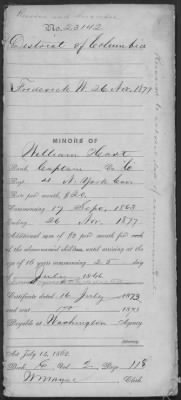 No. 23142
District of Columbia
Frederick W. 26 Nov. 1879
MINORS OF
William Hart
Rank, Captain Co. C
Regt. 21 N. York Cav
Rate per month, $20.
Commencing 17 Sept. 1863
Ending 26 Nov. 1877
Additional sum of $2 per month for each
of the above-named children, until arriving at the
age of 16 years commencing 25
of July 1866
Certificate dated 16 July 1873
and sent
Payable at Washington Agency
Act July 14, 1862.
Book C Vol. 2 Page 118
Clerk